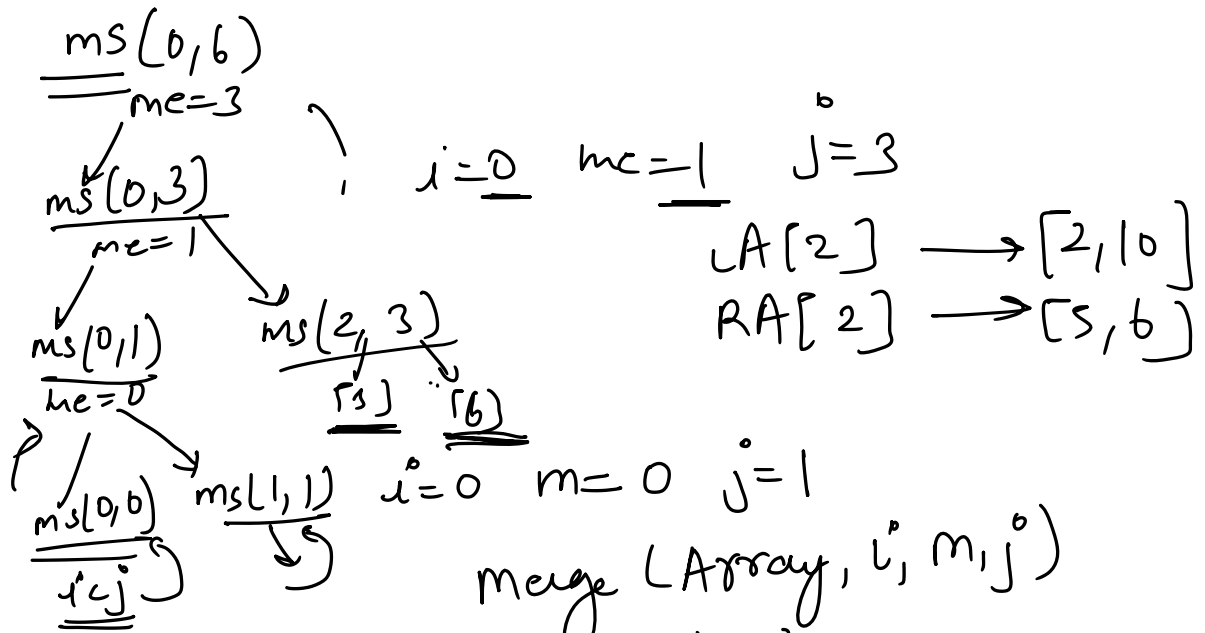 ms(0,6)
me=3
ms(0,3)
me=1
i=0 mc=1 j=3
LA[2] → [2,10]
RA[2] → [5,6]
ms(0,1)
me=0
ms(2,3)
[5] [6]
ms(0,0)
i<j
ms(1,1)
i=0 m=0 j=1
merge (Array, i, m, j)